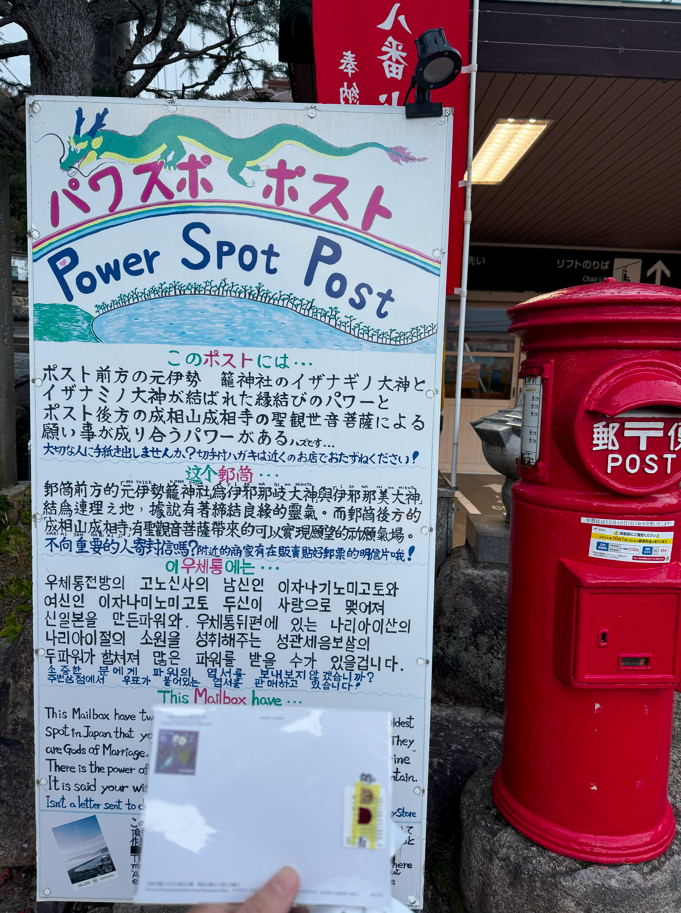 八番
奉納
パワスポ ポスト
Power Spot Post
洗い
リフトのりば
このポストには…
ポスト前方の元伊勢 籠神社のイザナギノ大神と
イザナミノ大神が結ばれた縁結びのパワーと
ポスト後方の成相山成相寺の聖観世音菩薩による
願い事が成り合うパワーがあるハズです…
大切な人に手紙を出しませんか?切手付ハガキは近くのお店でおたずねください!
这个郵筒…
郵筒前方的元伊勢籠神社為伊邪那岐大神與伊邪那美大神
結為連理之地,據說有著締結良緣的靈氣。而郵筒後方的
成相山成相寺有聖觀音菩薩帶來的可以實現願望的祈願氣場。
不向重要的人寄封信嗎?附近的商家有在販賣貼好郵票的明信片哦!
이우체통에는…
우체통전방의 고노신사의 남신인 이자나기노미고토와
여신인 이자나미노미고토 두신이 사랑으로 맺어져
신일본을 만든파워와. 우체통뒤편에 있는 나리아이산의
나리아이절의 소원을 성취해주는 성관세음보살의
두파워가 합쳐져 많은 파워를 받을 수가 있을겁니다.
소중한 분에게 파워의 엽서를 보내보지않겠습니까?
주변상점에서 우표가 붙어있는 엽서를 판매하고 있습니다!
This Mailbox have …
This Mailbox have tw
spot in Japan that yo
are Gods of Marriage.
There is the power of
It is said your wis
Isn't a letter sent to
Store
郵〒便
POST